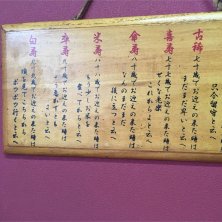 只今留守と云へ
古稀
七十才でお迎えの来た時は
まだまだ早いと云へ
喜寿
七十七才でお迎えの来た時は
せくな老楽
これからよと云へ
傘寿
八十才でお迎えの来た時は
なんのまだまだ
役に立つと云へ
米寿
八十八才でお迎えの来た時は
もう少しお米を
食べてからと云へ
卒寿
九十才でお迎えの来た時は
と云へ
白寿
九十九才でお迎えの来た時は
頃を見てこちらから
ボツボツ行くと云へ